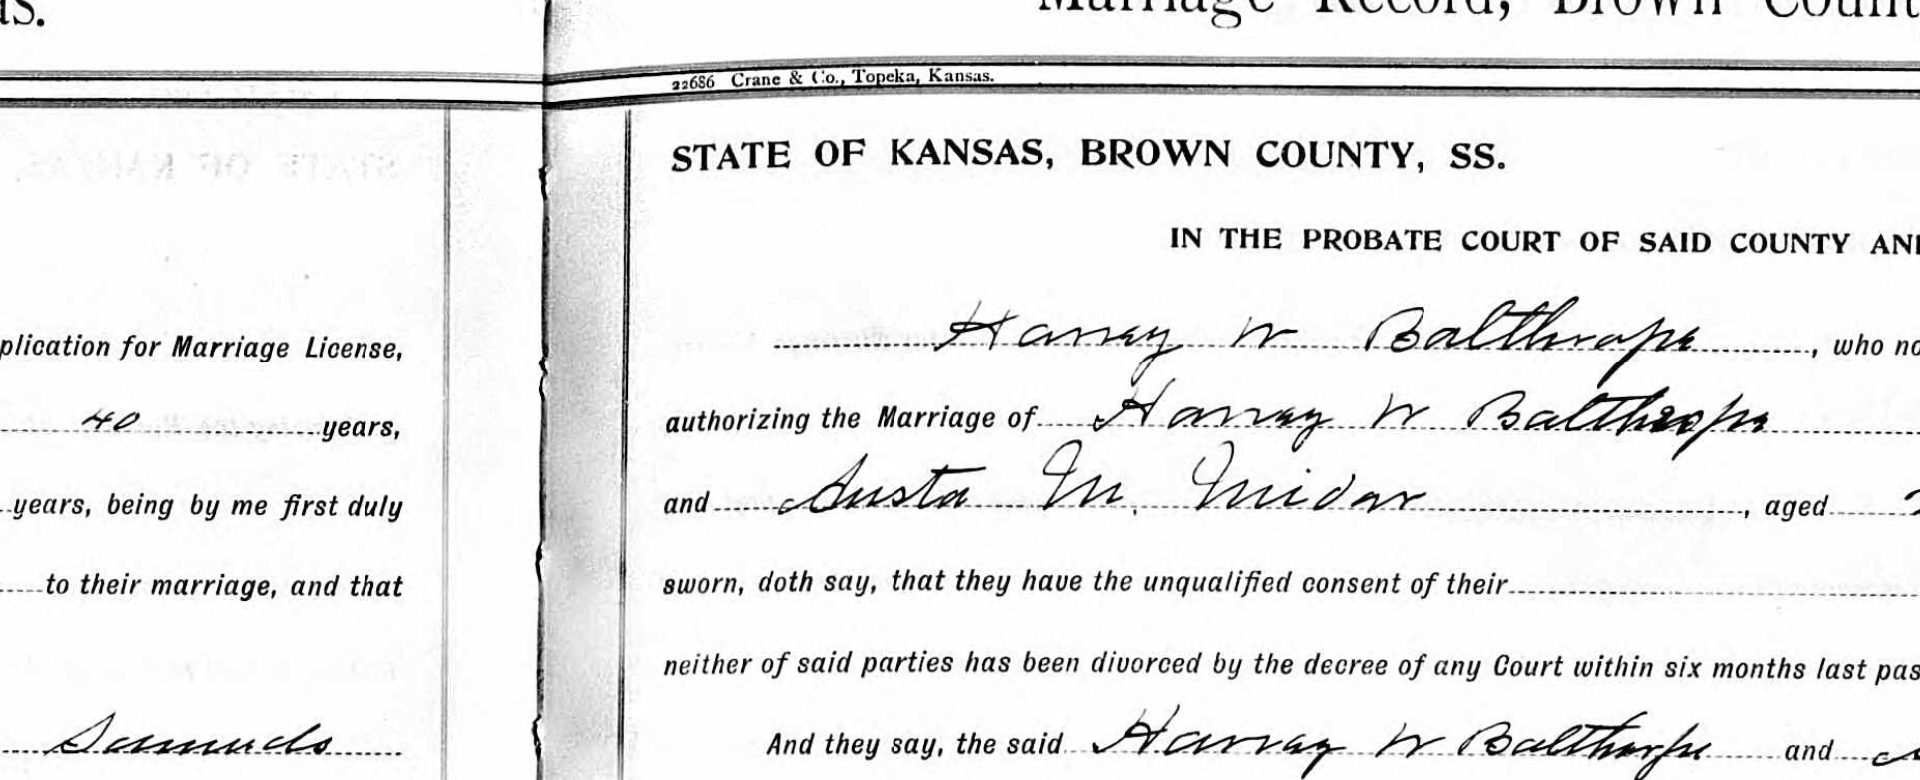 as.
plication for Marriage License,
40 years,
years, being by me first duly
to their marriage, and that
Samuels
Marriage Record, Brown Count
22686 Crane & Co., Topeka, Kansas.
STATE OF KANSAS, BROWN COUNTY, SS.
IN THE PROBATE COURT OF SAID COUNTY AN
Harvey W Balthrope, who no
authorizing the Marriage of Harvey W Balthrope
and Austa M. , aged 2
sworn, doth say, that they have the unqualified consent of their
neither of said parties has been divorced by the decree of any Court within six months last pas
And they say, the said Harvey W Balthorpe and